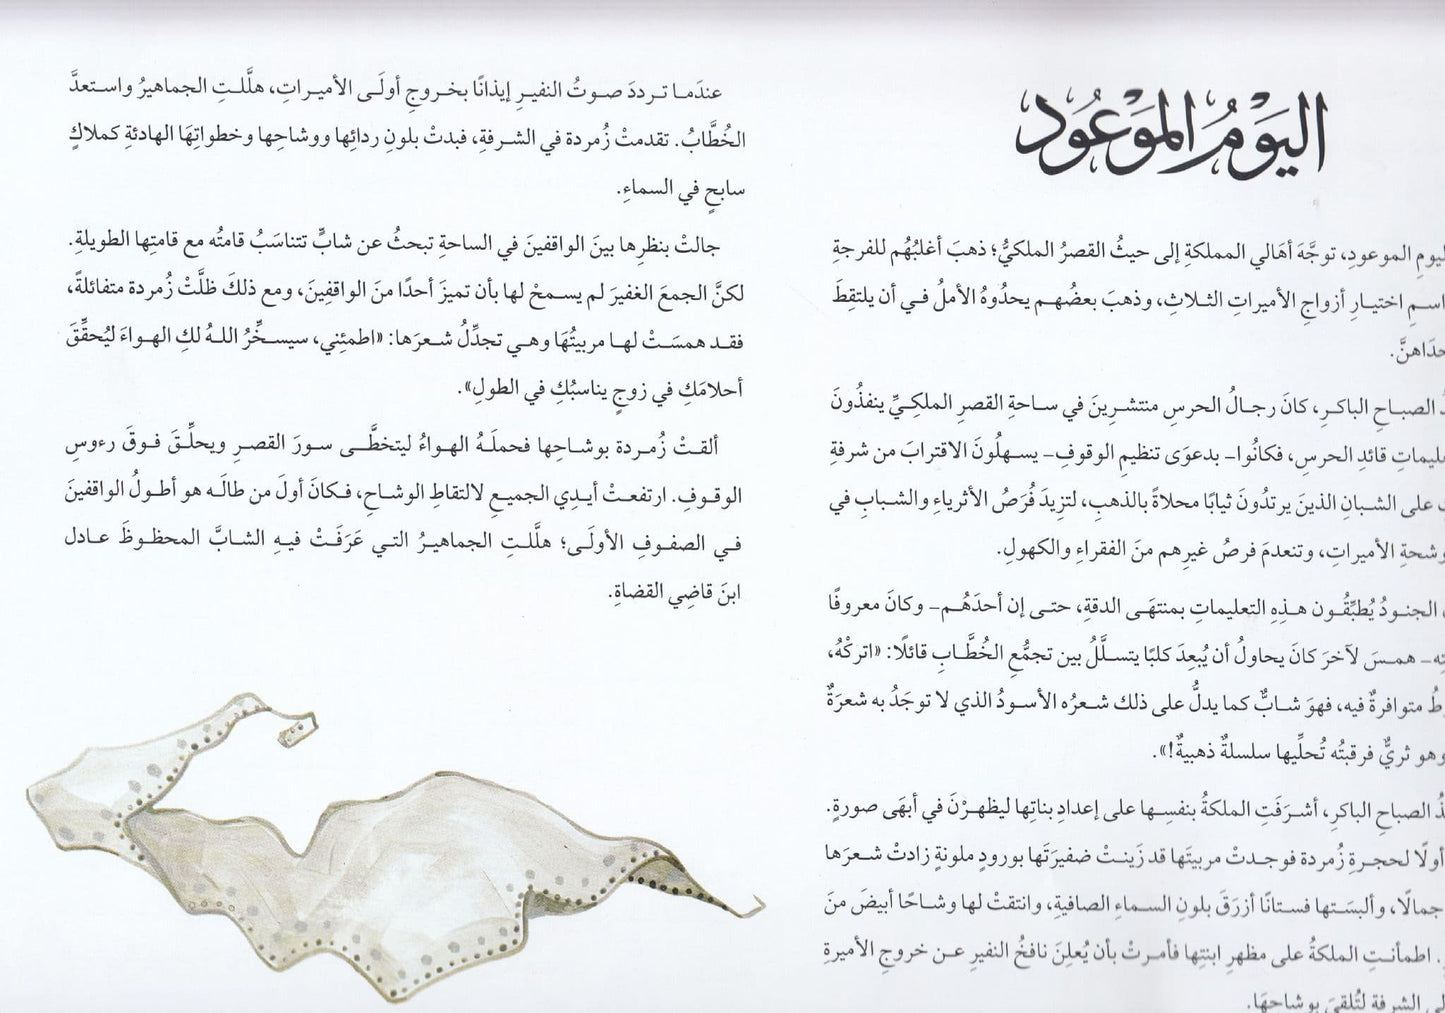 اليَوْمُ المَوْعُود
ليومِ الموعودِ، توجَّهَ أهَالي المملكةِ إلى حيثُ القصرُ الملكيُّ؛ ذهبَ أغلبُهُم للفرجةِ
اختيـارِ أزواجِ الأميـراتِ الثـلاثِ، وذهبَ بعضُهـم يحدُوهُ الأملُ فـي أن يلتقِطَ
الصبـاحِ الباكـرِ، كانَ رجـالُ الحرسِ منتشـرِينَ في سـاحةِ القصرِ الملكـيِّ ينفذُونَ
قائد الحرسِ، فكانُوا– بدعوَى تنظيمِ الوقوفِ– يسـهلُونَ الاقترابَ من شرفةِ
على الشبـانِ الذينَ يرتدُونَ ثيابًا محلاةً بالذهبِ، لتزِيدَ فُرَصُ الأثرياءِ والشبابِ في
الأميراتِ، وتنعدمَ فرصُ غيرِهم منَ الفقراءِ والكهولِ.
الجنـودُ يُطبِّقُـون هـذِهِ التعليمـاتِ بمنتهَـى الدقةِ، حتـى إن أحدَهُـم– وكانَ معروفًا
همـسَ لآخرَ كانَ يحاولُ أن يُبعِدَ كلبًا يتسـلَّلُ بين تجمُّعِ الخُطَّـابِ قائلًا: «اتركْهُ،
متوافرةٌ فيه، فهوَ شـابٌّ كما يدلُّ على ذلك شعـرُه الأسودُ الذي لا توجَدُ به شعرَةٌ
وهو ثريٌّ فرقبتُه تُحلِّيها سلسلةٌ ذهبيةٌ!».
الصباحِ الباكرِ، أشـرَفَتِ الملكةُ بنفسِـها على إعدادِ بناتِها ليظهـرْنَ في أبهَى صورةٍ.
أولًا لحجـرةِ زُمردة فوجـدتْ مربيتَها قد زَينـتْ ضفيرَتَها بورودٍ ملونةٍ زادتْ شـعرَها
جمالًا، وألبسَـتها فسـتانًا أزرَقَ بلونِ السـماءِ الصافيـةِ، وانتقتْ لها وشـاحًا أبيضَ منَ
. اطمأنـتِ الملكةُ على مظهرِ ابنتِها فأمـرتْ بأن يُعلِنَ نافخُ النفيرِ عـن خروجِ الأميرةِ
الشرفةِ لتُلقيَ بوشاحِهَا.
عندَمـا تـرددَ صـوتُ النفيـرِ إيذانًا بخـروجِ أولَـى الأميـراتِ، هلَّلـتِ الجماهيرُ واسـتعدَّ
الخُطَّابُ. تقدمتْ زُمردة في الشـرفةِ، فبدتْ بلونِ ردائِها ووشاحِها وخطواتِهَا الهادئةِ كملاكٍ
سابحٍ في السماءِ.
جالتْ بنظرِها بينَ الواقفينَ في الساحةِ تبحثُ عن شابٍّ تتناسَبُ قامتُه مع قامتِها الطويلةِ.
لكنَّ الجمعَ الغفيرَ لم يسـمحْ لها بأن تميزَ أحدًا منَ الواقفِينَ، ومع ذلكَ ظلَّتْ زُمردة متفائلةً،
فقـد همسَـتْ لهـا مربيتُهَا وهـي تجدِّلُ شـعرَها: «اطمئِنِي، سيسـخِّرُ اللهُ لكِ الهـواءَ ليُحقِّقَ
أحلامَكِ في زوجٍ يناسبُكِ في الطولِ».
ألقـتْ زُمـردة بوشـاحِها فحملَـهُ الهـواءُ ليتخطَّـى سـورَ القصـرِ ويحلِّـقَ فـوقَ رءوسِ
الوقـوفِ. ارتفعـتْ أيـدِي الجميـعِ لالتقاطِ الوشـاحِ، فـكانَ أولَ من طالَـه هو أطـولُ الواقفينَ
فـي الصفـوفِ الأولَـى؛ هلَّلـتِ الجماهيـرُ التـي عَرَفَـتْ فيـهِ الشـابَّ المحظـوظَ عـادل
ابنَ قاضِي القضاةِ.